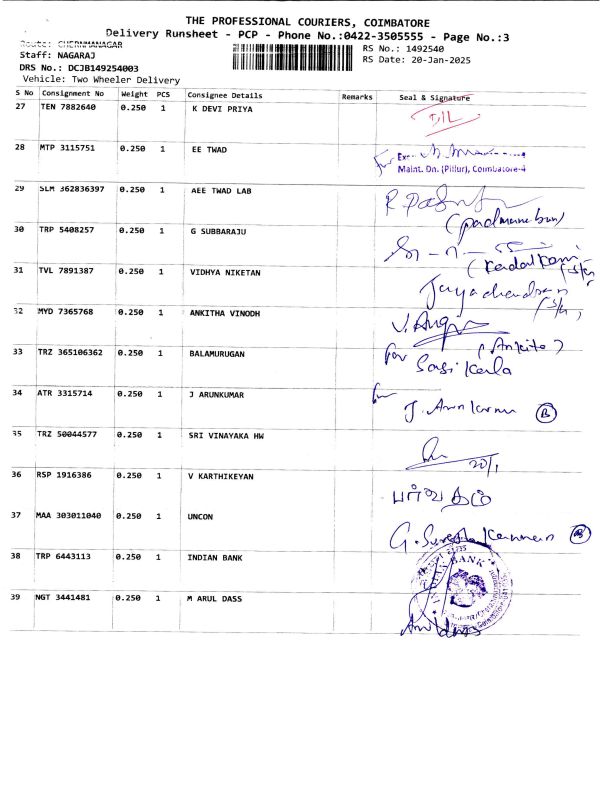 THE PROFESSIONAL COURIERS, COIMBATORE
Delivery Runsheet - PCP - Phone No.:0422-3505555 - Page No.:3
Route: CHERNMANAGAR
Staff: NAGARAJ
RS No.: 1492540
DRS No.: DCJB149254003
RS Date: 20-Jan-2025
Vehicle: Two Wheeler Delivery
S No Consignment No Weight PCS Consignee Details Remarks Seal & Signature
27 TEN 7882640 0.250 1 K DEVI PRIYA
28 MTP 3115751 0.250 1 EE TWAD
Maint. Dn. (Pillur), Coimbatore-4
29 SLM 362836397 0.250 1 AEE TWAD LAB
30 TRP 5408257 0.250 1 G SUBBARAJU
31 TVL 7891387 0.250 1 VIDHYA NIKETAN
Jayachandran
32 MYD 7365768 0.250 1 ANKITHA VINODH
(Ankite)
33 TRZ 365106362 0.250 1 BALAMURUGAN
for Sasikala
34 ATR 3315714 0.250 1 J ARUNKUMAR
J. Arunkumar B
35 TRZ 50044577 0.250 1 SRI VINAYAKA HW
20/1
36 RSP 1916386 0.250 1 V KARTHIKEYAN
பர்வதம்
37 MAA 303011040 0.250 1 UNCON
G. Suresh Kannan B
38 TRP 6443113 0.250 1 INDIAN BANK
39 NGT 3441481 0.250 1 M ARUL DASS